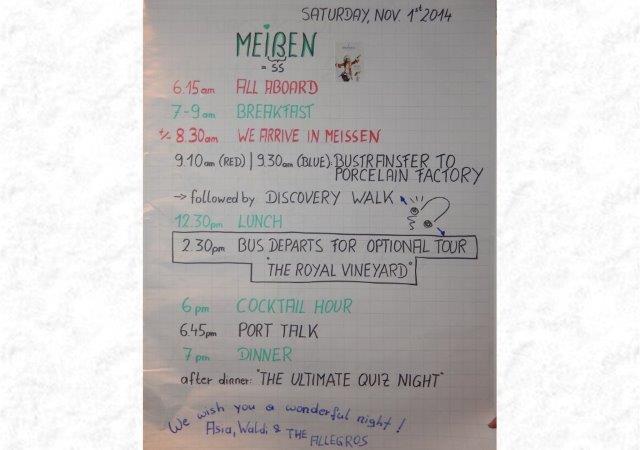 SATURDAY, NOV. 1st 2014
MEIßEN
= SS
6.15am ALL ABOARD
7-9am BREAKFAST
+/- 8.30am WE ARRIVE IN MEISSEN
9.10am (RED) | 9.30am (BLUE): BUSTRANSFER TO
PORCELAIN FACTORY
→ followed by DISCOVERY WALK
12.30pm LUNCH
2.30pm BUS DEPARTS FOR OPTIONAL TOUR
"THE ROYAL VINEYARD"
6pm COCKTAIL HOUR
6.45pm PORT TALK
7pm DINNER
after dinner: "THE ULTIMATE QUIZ NIGHT"
We wish you a wonderful night!
Asia, Waldi & THE ALLEGROS